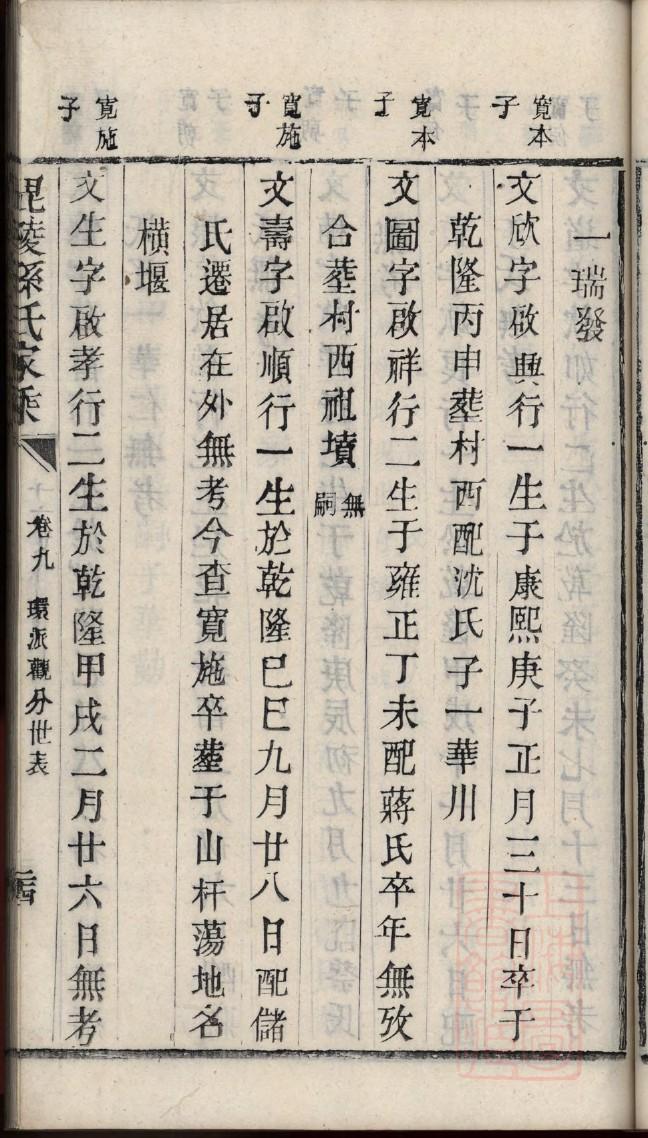 一瑞發
寬本子
文欣字啟興行一生于康熙庚子正月三十日卒于
乾隆丙申塟村西配沈氏子一華川
寬本子
文圖字啟祥行二生于雍正丁未配蔣氏卒年無攷
合塟村西祖墳無嗣
寬施子
文壽字啟順行一生於乾隆己巳九月廿八日配儲
氏遷居在外無考今查寬施卒塟于山杆蕩地名
橫堰
寬施子
文生字啟孝行二生於乾隆甲戌二月廿六日無考
毘陵孫氏家乘
卷九 環派觀分世表